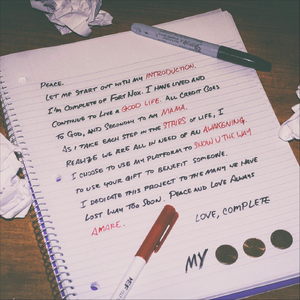 Peace.
Let me start out with my introduction.
I'm Complete of Fort Nox. I have lived and
Continue to live a good life. All credit goes
To God, and secondly to my mama.
As I take each step in the stairs of life, I
Realize we are all in need of an awakening.
I choose to use my platform to show u the way
To use your gift to benefit someone.
I dedicate this project to the many we have
Lost way too soon. Peace and love always
Amore.
Love, Complete
My